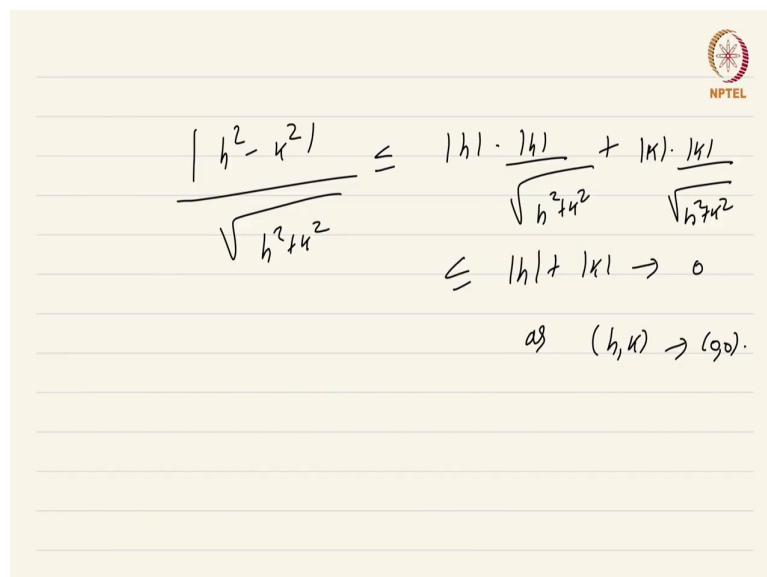 NPTEL
|h² - k²| / √(h²+k²) ≤ |h| · |h| / √(h²+k²) + |k| · |k| / √(h²+k²)
≤ |h| + |k| → 0
as (h, k) → (0,0).